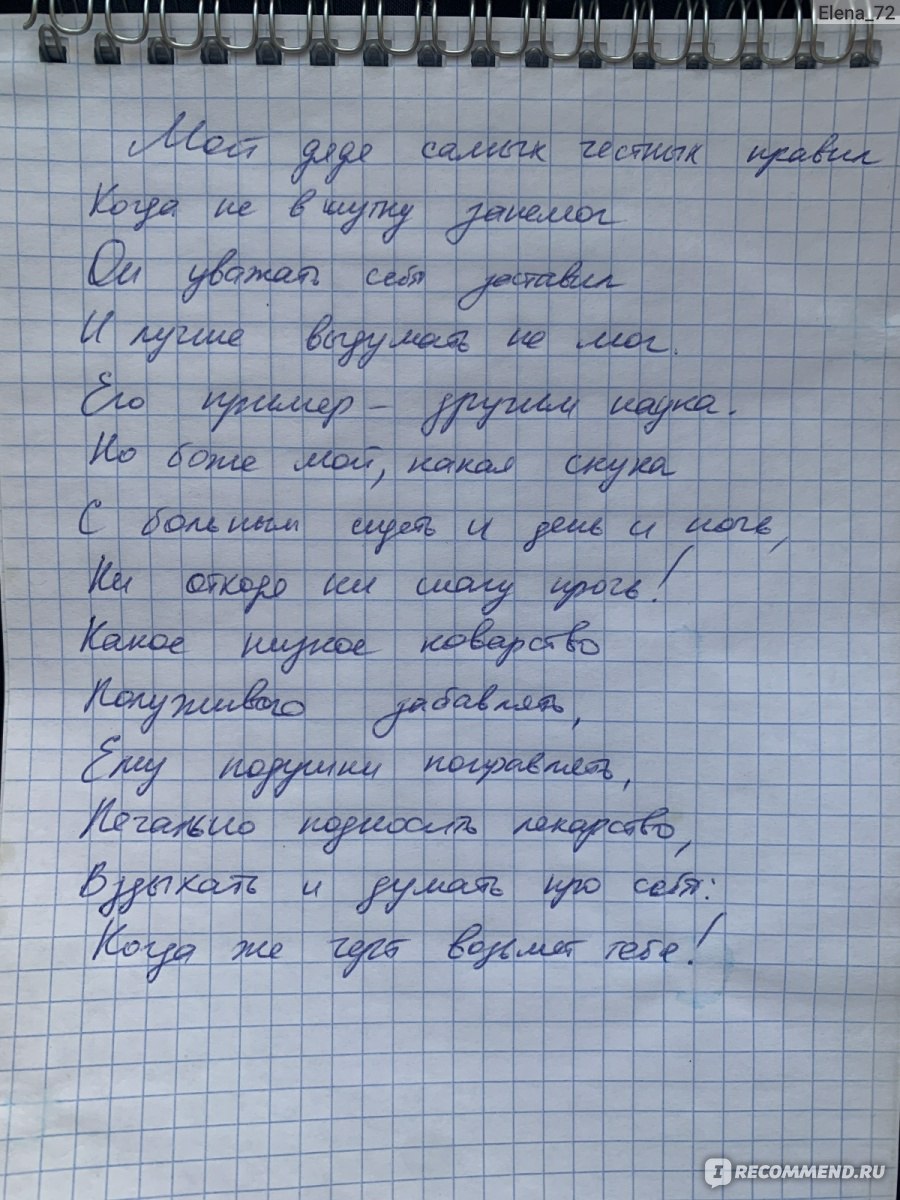 Elena_72
Мой дядя самых честных правил
Когда не в шутку занемог
Он уважать себя заставил
И лучше выдумать не мог.
Его пример – другим наука.
Но боже мой, какая скука
С больным сидеть и день и ночь,
Не отходя ни шагу прочь!
Какое низкое коварство
Полуживого забавлять,
Ему подушки поправлять,
Печально подносить лекарство,
Вздыхать и думать про себя:
Когда же черт возьмет тебя!
I RECOMMEND.RU